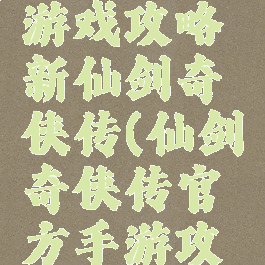 游戏攻略
新仙剑奇
侠传(仙剑
奇侠传官
方手游攻